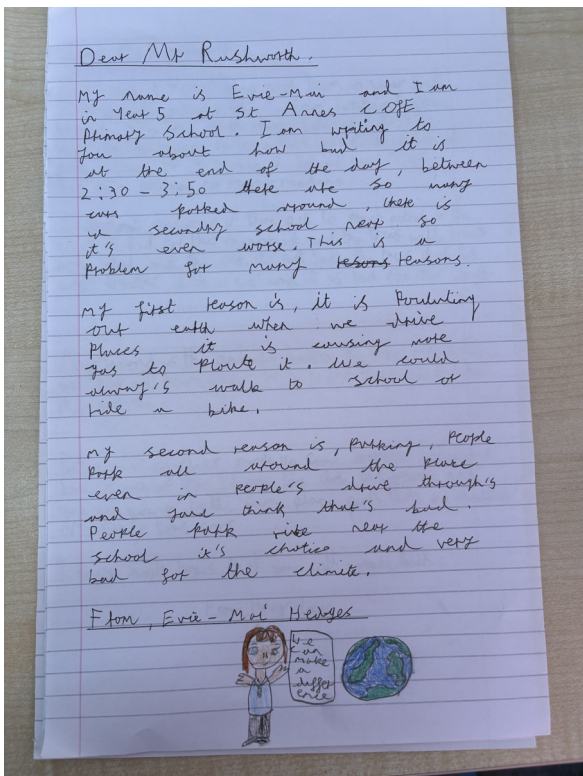 Dear Mr Rushworth.
My name is Evie-Mai and I am
in Year 5 at St Annes C OFE
Primary School. I am writing to
you about how bad it is
at the end of the day, between
2:30 - 3:50 there are so many
cars parked around, there is
a secondry school near so
it's even worse. This is a
Problem for many resons reasons.
My first reason is, it is Poululuting
our earth when we drive
Places it is causing more
gas to Ploute it. We could
always's walk to school or
ride a bike.
My second reason is, parking, People
Park all around the place
even in People's drive through's
and think that's bad.
People park rite near the
school it's chotic and very
bad for the climite.
From, Evie-Mai Hedges
We
can
make
a
differ
ence